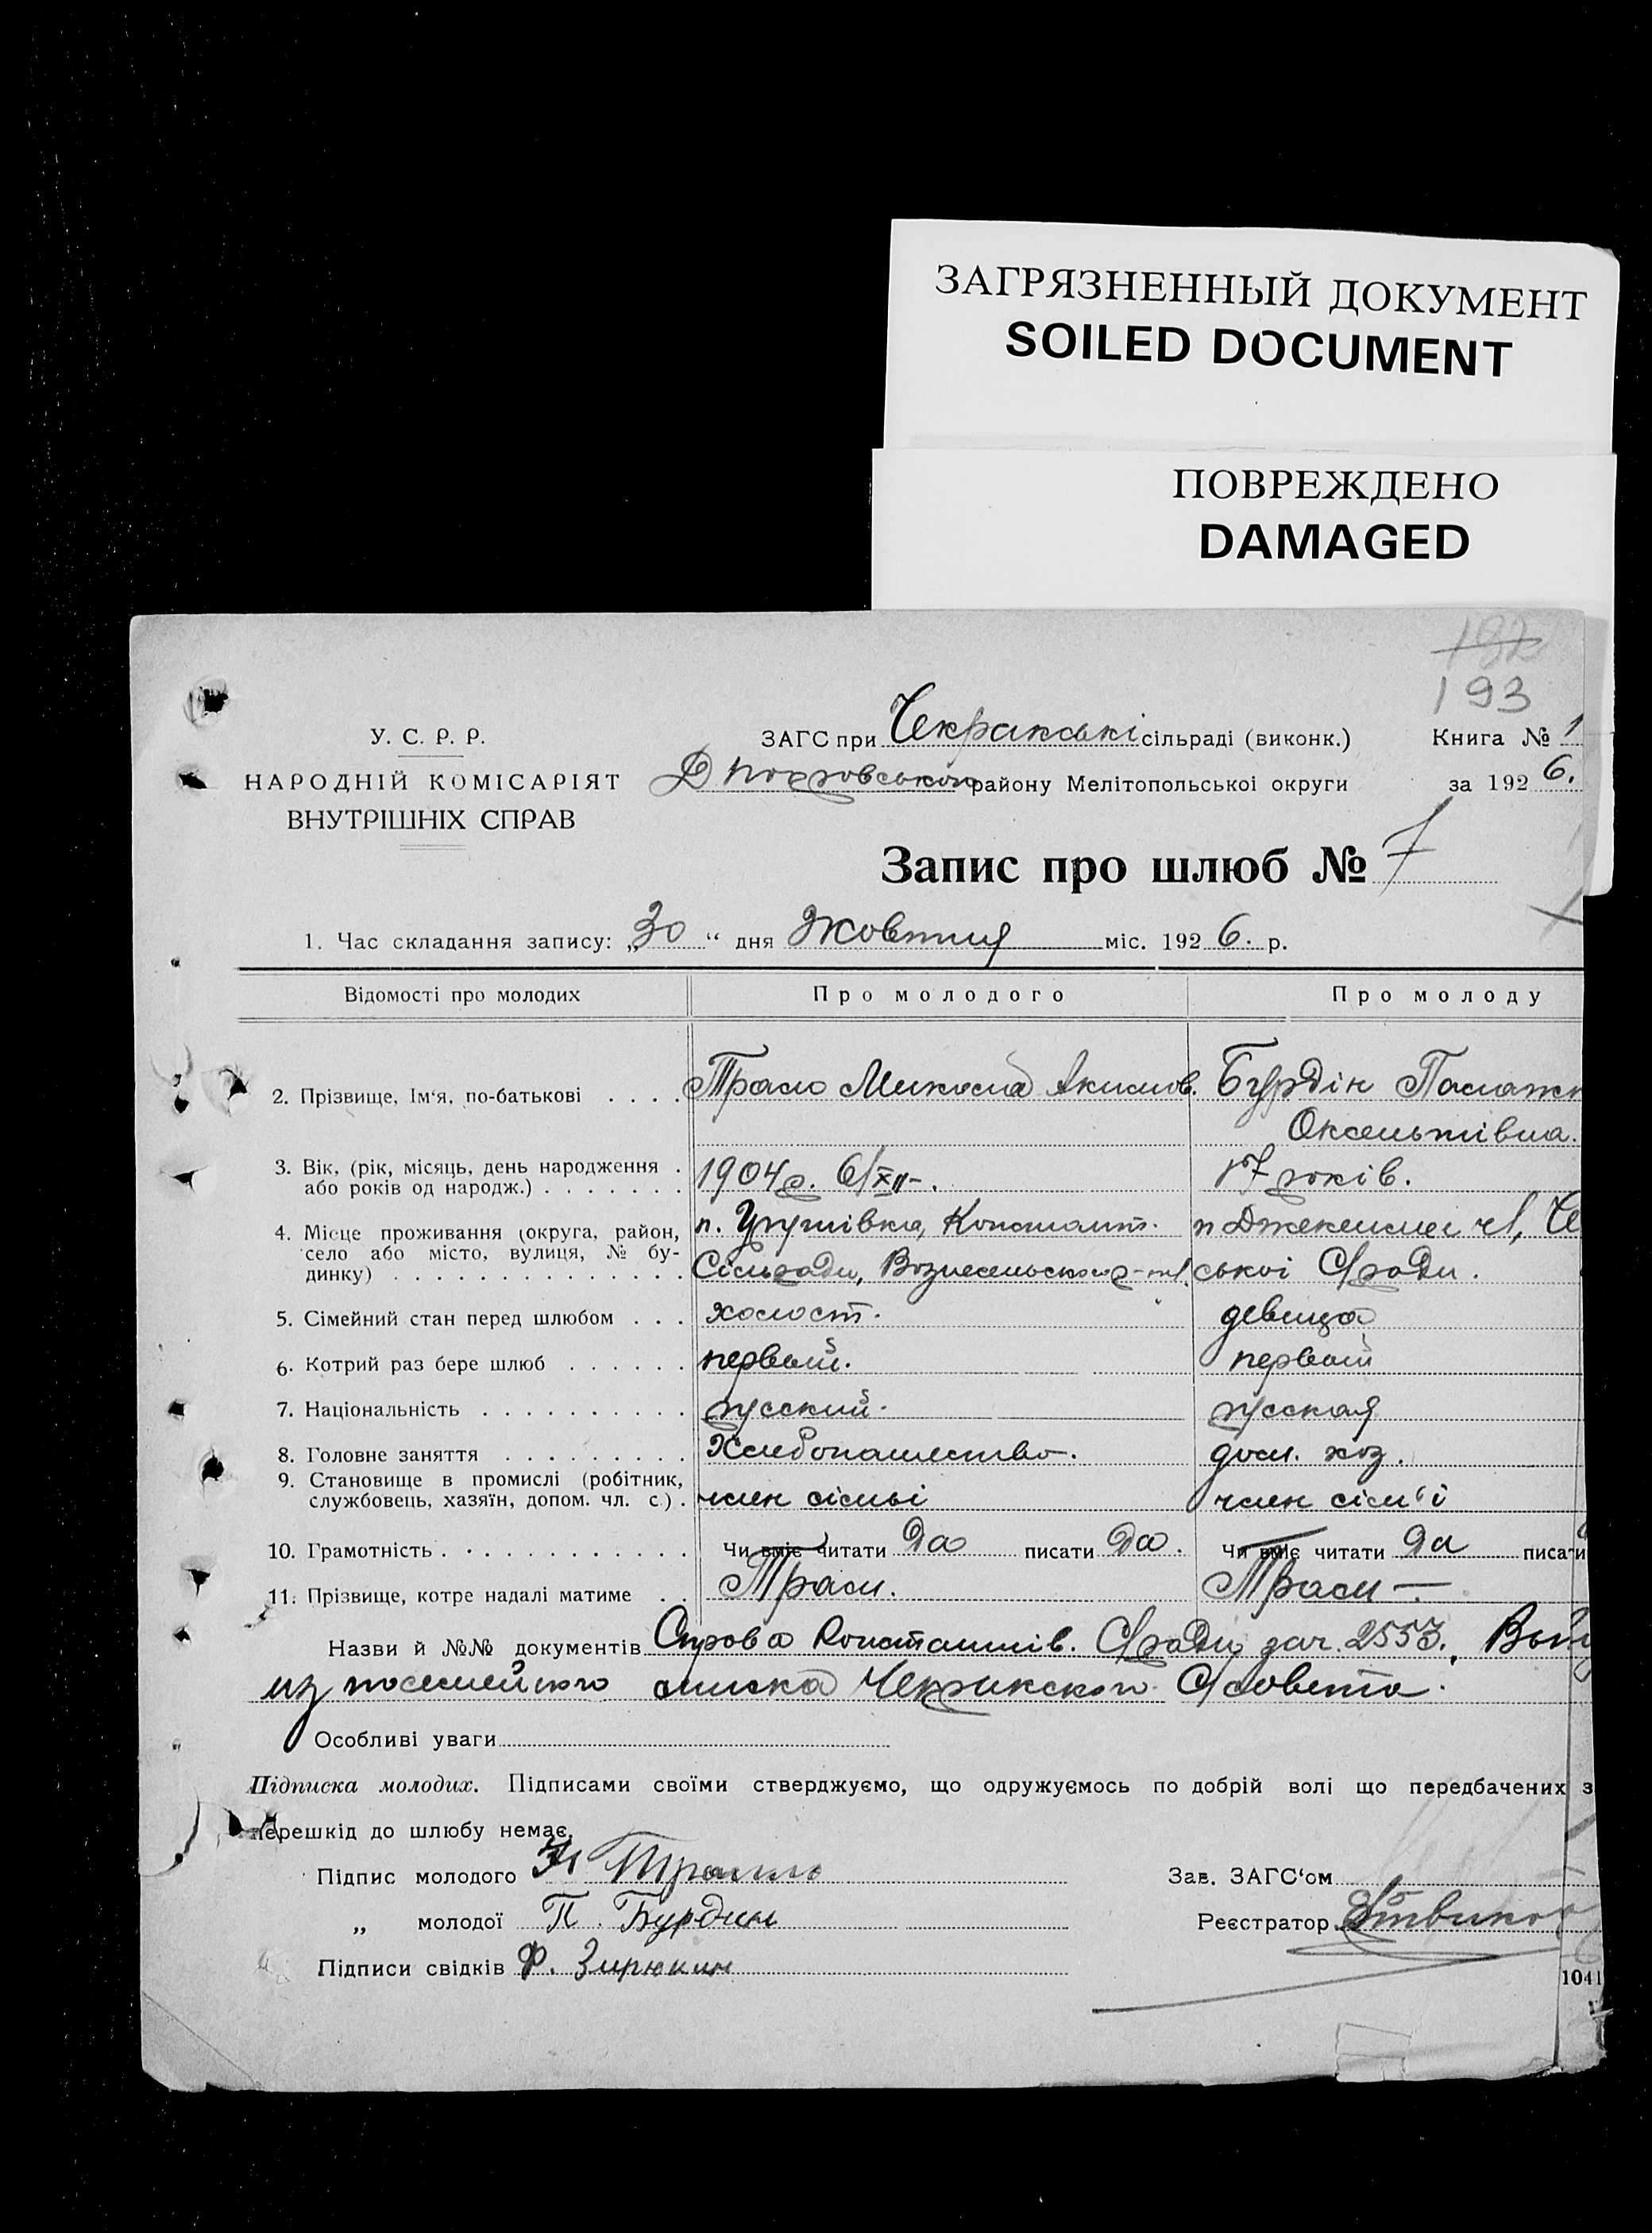 ЗАГРЯЗНЕННЫЙ ДОКУМЕНТ
SOILED DOCUMENT
ПОВРЕЖДЕНО
DAMAGED
192
193
У. С. Р. Р.
НАРОДНІЙ КОМІСАРІЯТ
ВНУТРІШНІХ СПРАВ
ЗАГС при Чекракські сільраді (виконк.)
Покровського району Мелітопольської округи
Книга № 1
за 1926.
Запис про шлюб № 7
1. Час складання запису: „30“ дня Жовтня міс. 1926. р.
Відомості про молодих Про молодого Про молоду
2. Прізвище, Ім'я, по-батькові . . . . Микола Акимов. Бурдін
3. Вік, (рік, місяць, день народження . 1904 р. 6/XII-. 17 років.
або років од народж.) . . . . . . .
4. Місце проживання (округа, район, Констант.
село або місто, вулиця, № бу- Сільради, Вознесенського р-ну. ської С/ради.
динку) . . . . . . . . . . . . . . .
5. Сімейний стан перед шлюбом . . . холост. девица
6. Котрий раз бере шлюб . . . . . . первый. первый
7. Національність . . . . . . . . . . русский. русская
8. Головне заняття . . . . . . . . . Хлебопашество. дом. хоз.
9. Становище в промислі (робітник, член сімьі член сім'ї
службовець, хазяїн, допом. чл. с.) .
10. Грамотність . . . . . . . . . . . . Чи вміє читати да писати да. Чи вміє читати да писати
11. Прізвище, котре надалі матиме . .
Назви й №№ документів Константів. С/ради зач. 2553.,
из посемейного списка Чекракского С/совета.
Особливі уваги
Підписка молодих. Підписами своїми стверджуємо, що одружуємось по добрій волі що передбачених з
перешкід до шлюбу немає.
Підпис молодого
„ молодої П. Бурдин
Підписи свідків Ф. Зирюкин
Зав. ЗАГС'ом
Реєстратор
1041